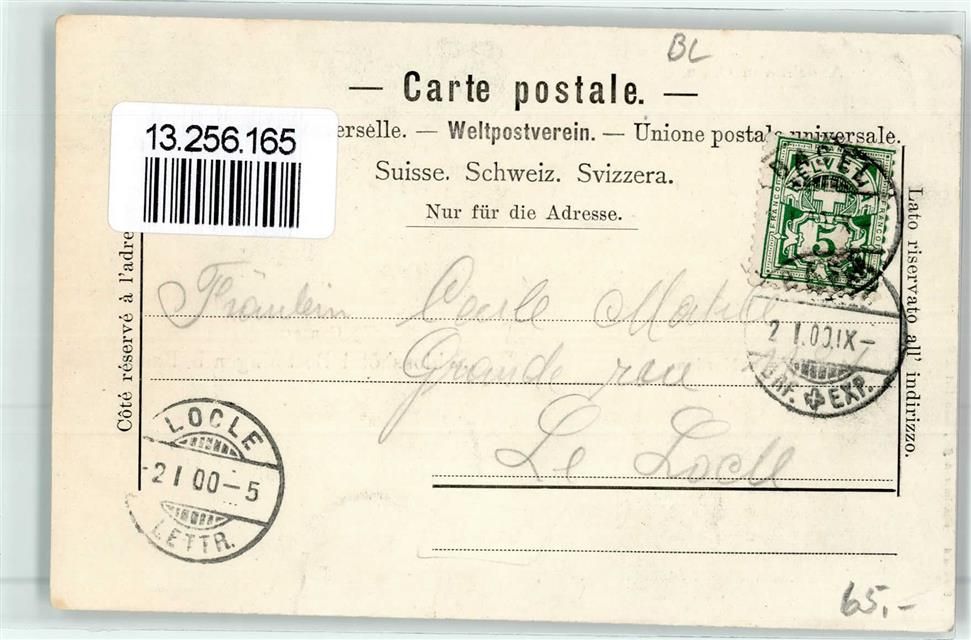 BL
— Carte postale. —
13.256.165
erselle. — Weltpostverein. — Unione postale universale.
Suisse. Schweiz. Svizzera.
Nur für die Adresse.
Côté réservé à l'adre
Lato riservato all' indirizzo.
HELVETIA
FRANCO
FRANCO
5
BASEL
2 I.00.IX–
BRF. EXP.
Fräulein Cecile
Grande rue
Le Locle
LOCLE
-2 I 00-5
LETTR.
65,-